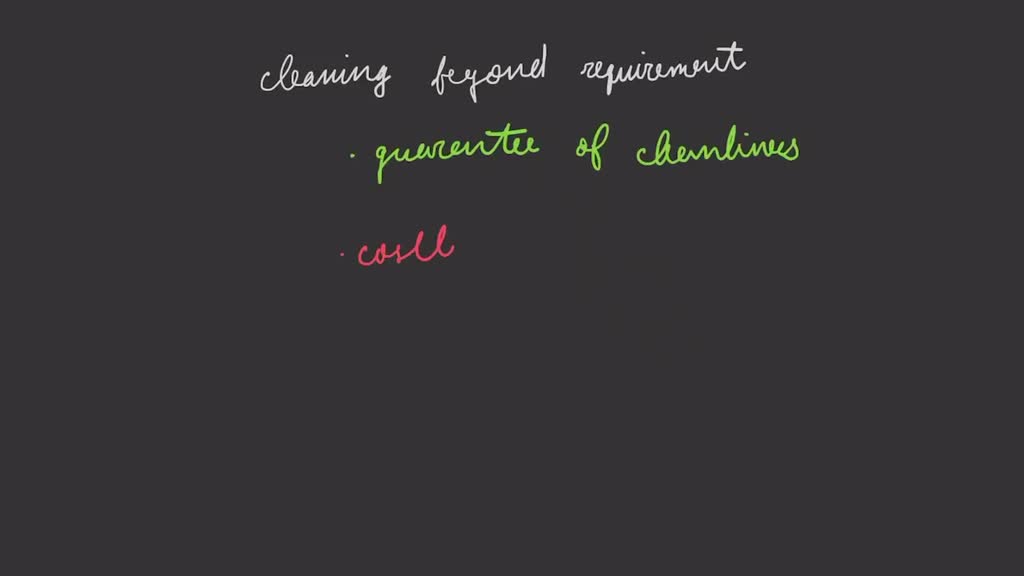 cleaning beyond requirement
· guarentee of cleanlines
· cost